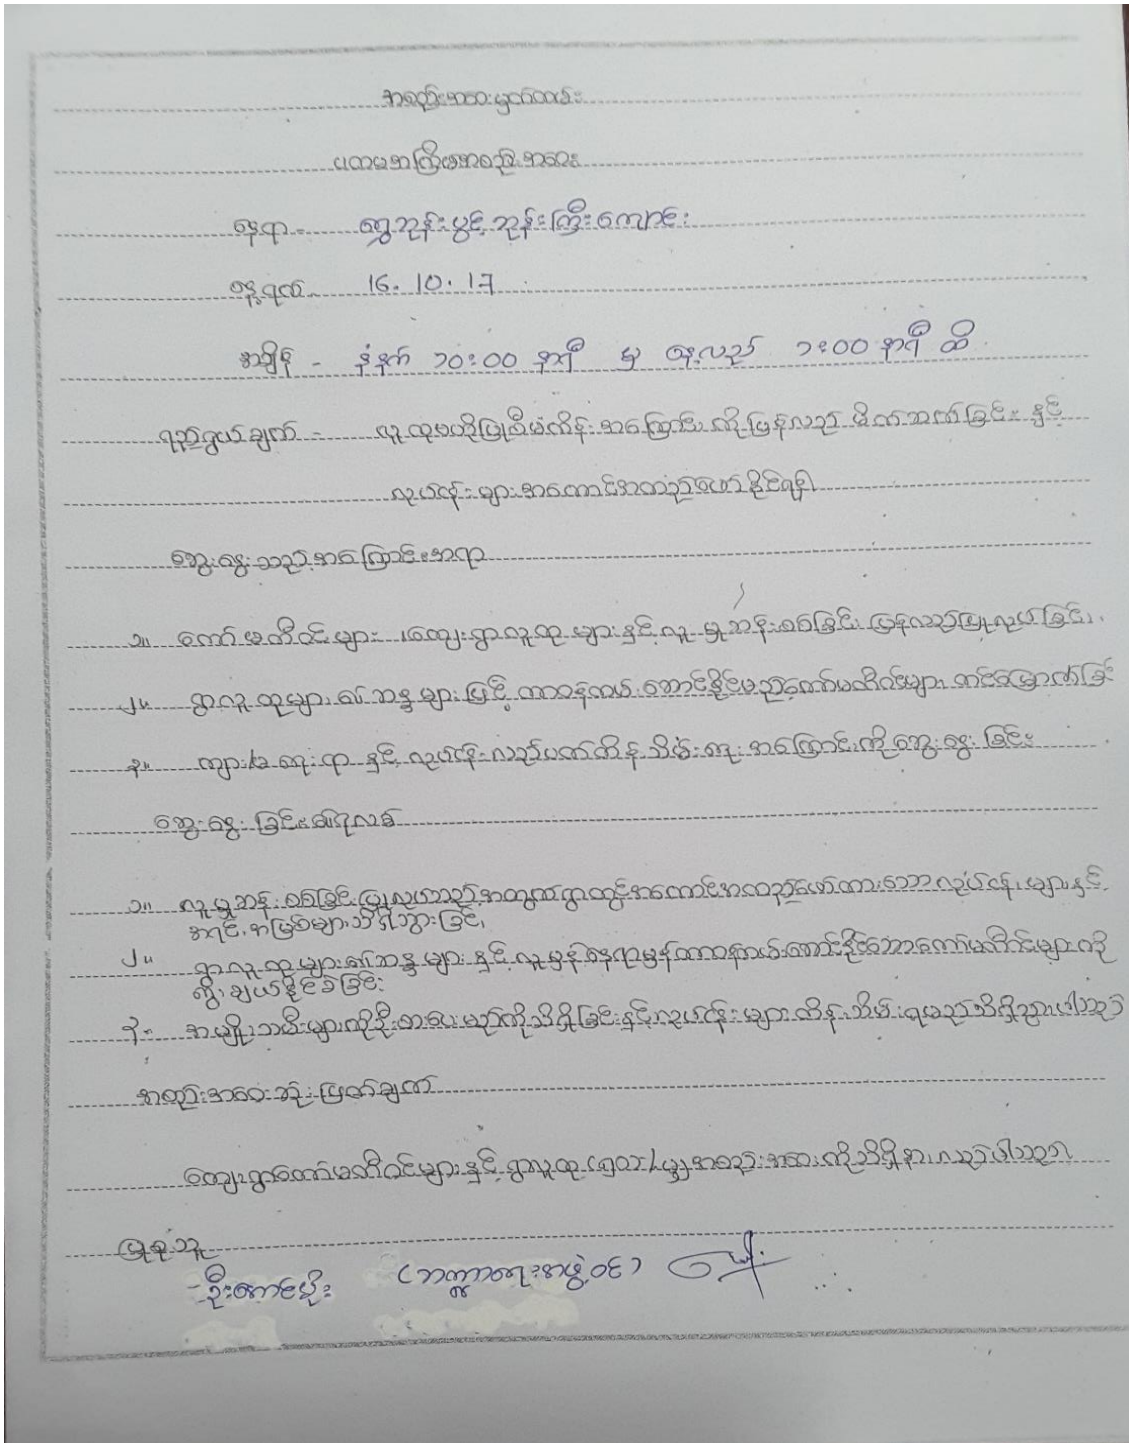 အစည်းအဝေးမှတ်တမ်း
ပဏာမအကြိမ်အစည်းအဝေး
နေရာ - ရွှေဘုန်းပွင့်ဘုန်းကြီးကျောင်း
နေ့ရက် - 16.10.17
အချိန် - နံနက် ၁၀:၀၀ နာရီ မှ နေ့လည် ၁:၀၀ နာရီ ထိ
ရည်ရွယ်ချက် - လူထုဗဟိုပြုစီမံကိန်းအကြောင်းကိုပြန်လည်မိတ်ဆက်ခြင်းနှင့်
လုပ်ငန်းများအကောင်အထည်ဖော်နိုင်ရန်
ဆွေးနွေးသည့်အကြောင်းအရာ
၁။ ကော်မတီဝင်များ၊ ကျေးရွာလူထုများနှင့်လူမှုဆန်းစစ်ခြင်းပြန်လည်ပြုလုပ်ခြင်း
၂။ ရွာလူထုများ၏ဆန္ဒများဖြင့်တာဝန်ထမ်းဆောင်နိုင်မည့်ကော်မတီဝင်များတင်မြှောက်ခြင်း
၃။ ကျား/မရေးရာနှင့်လုပ်ငန်းလည်ပတ်ထိန်းသိမ်းရေးအကြောင်းကိုဆွေးနွေးခြင်း
ဆွေးနွေးခြင်းရလဒ်
၁။ လူမှုဆန်းစစ်ခြင်းပြုလုပ်သည့်အတွက်ရွာတွင်အကောင်အထည်ဖော်ထားသောလုပ်ငန်းများနှင့်
အရင်းအမြစ်များသိရှိသွားခြင်း
၂။ ရွာလူထုများ၏ဆန္ဒများနှင့်လူမှန်နေရာမှန်တာဝန်ထမ်းဆောင်နိုင်သောကော်မတီဝင်များကို
ရွေးချယ်နိုင်ခဲ့ခြင်း
၃။ အမျိုးသမီးများကိုဦးစားပေးမည်ကိုသိရှိခြင်းနှင့်လုပ်ငန်းများထိန်းသိမ်းရမည်သိရှိသွားပါသည်
အစည်းအဝေးဆုံးဖြတ်ချက်
ကျေးရွာကော်မတီဝင်များနှင့်ရွာလူထု မှအစည်းအဝေးကိုသိရှိနားလည်ပါသည်။
ပြုစုသူ
- ဦးအောင်မိုး (ဘဏ္ဍာရေးအဖွဲ့ဝင်)